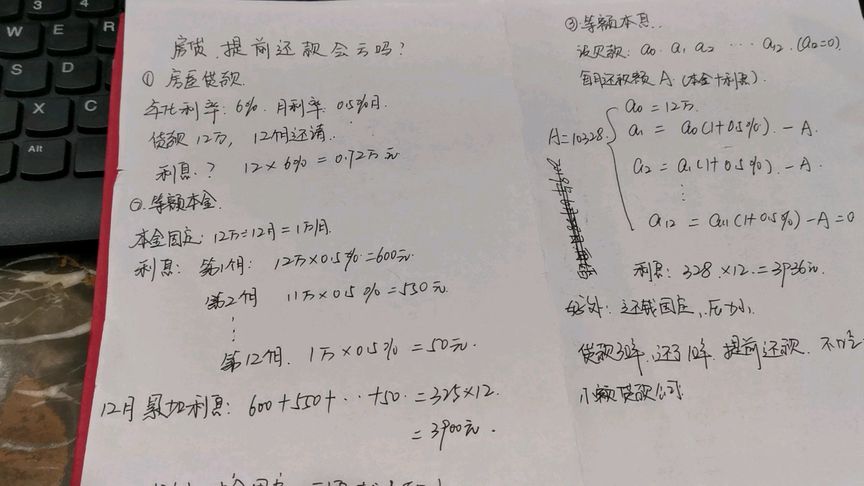 房贷.提前还款会亏吗?
① 房屋贷款.
年化利率: 6%. 月利率: 0.5%月.
贷款 12万, 12个月还清.
利息.? 12×6% = 0.72万元
②.等额本金.
本金固定: 12万÷12月=1万/月.
利息: 第1个月: 12万×0.5%=600元.
第2个月 11万×0.5%=550元.
⋮
第12个月. 1万×0.5% = 50元.
12月 累加利息: 600+550+··+50. = 325×12.
= 3900元.
③.等额本息..
没欠款: a0. a1 a2 ··· a12. (a12=0)
每月还款额 A. (本金+利息).
A=10328.
a0 = 12万.
a1 = a0(1+0.5%). - A.
a2 = a1(1+0.5%). - A.
⋮
a12 = a11(1+0.5%) - A = 0
利息: 328.×12.=3936元.
好处: 还钱固定, 压力小.
贷款30年.还了10年.提前还款.
小额贷款公司.
W E R
S D
X C
Alt
3 4